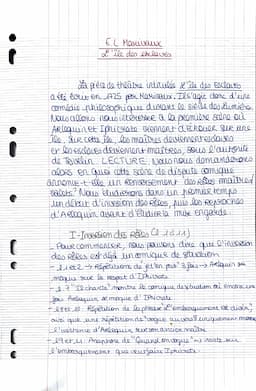 EL Marivaux
L'île des esclaves
La pièce de théâtre intitulée L'île des Esclaves
a été écrit en 1725 par Marivaux. Il s'agit donc d'une
comédie philosophique durant le siècle des Lumières.
Nous allons nous intéresser à la première scène où
Arlequin et Iphicrate viennent d'échouer sur une
île. Sur cette île, les maîtres deviennent esclaves
et les esclaves deviennent maîtres, sous l'autorité
de Trivelin. LECTURE. Nous nous demanderons
alors en quoi cette scène de dispute comique
annonce-t-elle un renversement des rôles maîtres/
valets? Nous étudierons dans un premier temps
un début d'inversion des rôles, puis les reproches
d'Arlequin avant d'étudier la mise en garde.
I-Inversion des rôles (l. 1 à 11)
- Pour commencer, nous pouvons dire que l'inversion
des rôles est déjà un comique de situation
- l.1 et 2 → Répétitions de 3 fois → Arlequin se
moque sur le regret d'Iphicrate
- l.7 "Il chante" montre le comique de situation où encore une
fois Arlequin se moque d'Iphicrate
- Répétition de la phrase "L'embarquement est divin",
ainsi que une répétition de "vogue" uniquement montre
l'insistance d'Arlequin sur son ancien maître
- Anaphore de "Quand on vogue" → insiste sur
l'embarquement que veut faire Iphicrate.